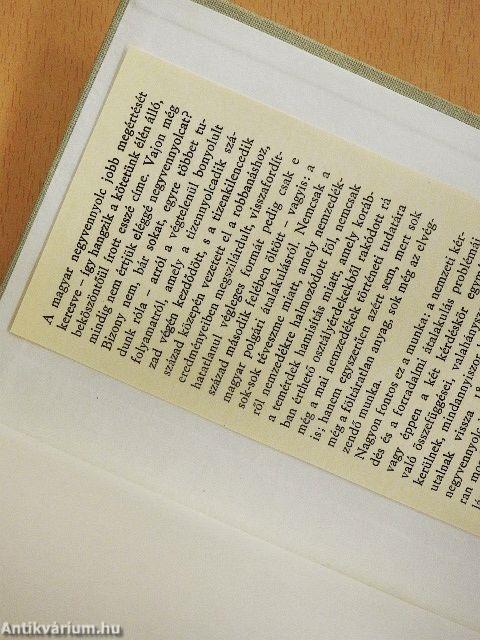 A magyar negyvennyolc jobb megértését
keresve – így hangzik a kötetünk élén álló,
beköszöntőül írott esszé címe. Vajon még
mindig nem értjük eléggé negyvennyolcat?
Bizony nem, bár sokat, egyre többet tu-
dunk róla – arról a végtelenül bonyolult
folyamatról, amely a tizennyolcadik szá-
zad végén kezdődött, s a tizenkilencedik
század közepén vezetett el a robbanáshoz,
eredményeiben megszilárdult, visszafordít-
hatatlanul végleges formát pedig csak e
század második felében öltött – vagyis: a
magyar polgári átalakulásról. Nemcsak a
sok-sok téveszme miatt, amely nemzedék-
ről nemzedékre halmozódott föl, nemcsak
a temérdek hamisítás miatt, amely koráb-
ban érthető osztályérdekekből rakódott rá
még a mai nemzedékek történeti tudatára
is; hanem egyszerűen azért sem, mert sok
még a föltáratlan anyag, sok még az elvég-
zendő munka.
Nagyon fontos ez a munka: a nemzeti kér-
dés és a forradalmi átalakulás problémái
vagy éppen a két kérdéskör
való összefüggései,
kerülnek, mindannyiszor
utalnak vissza
negyvennyolc
ran
Antikvárium.hu